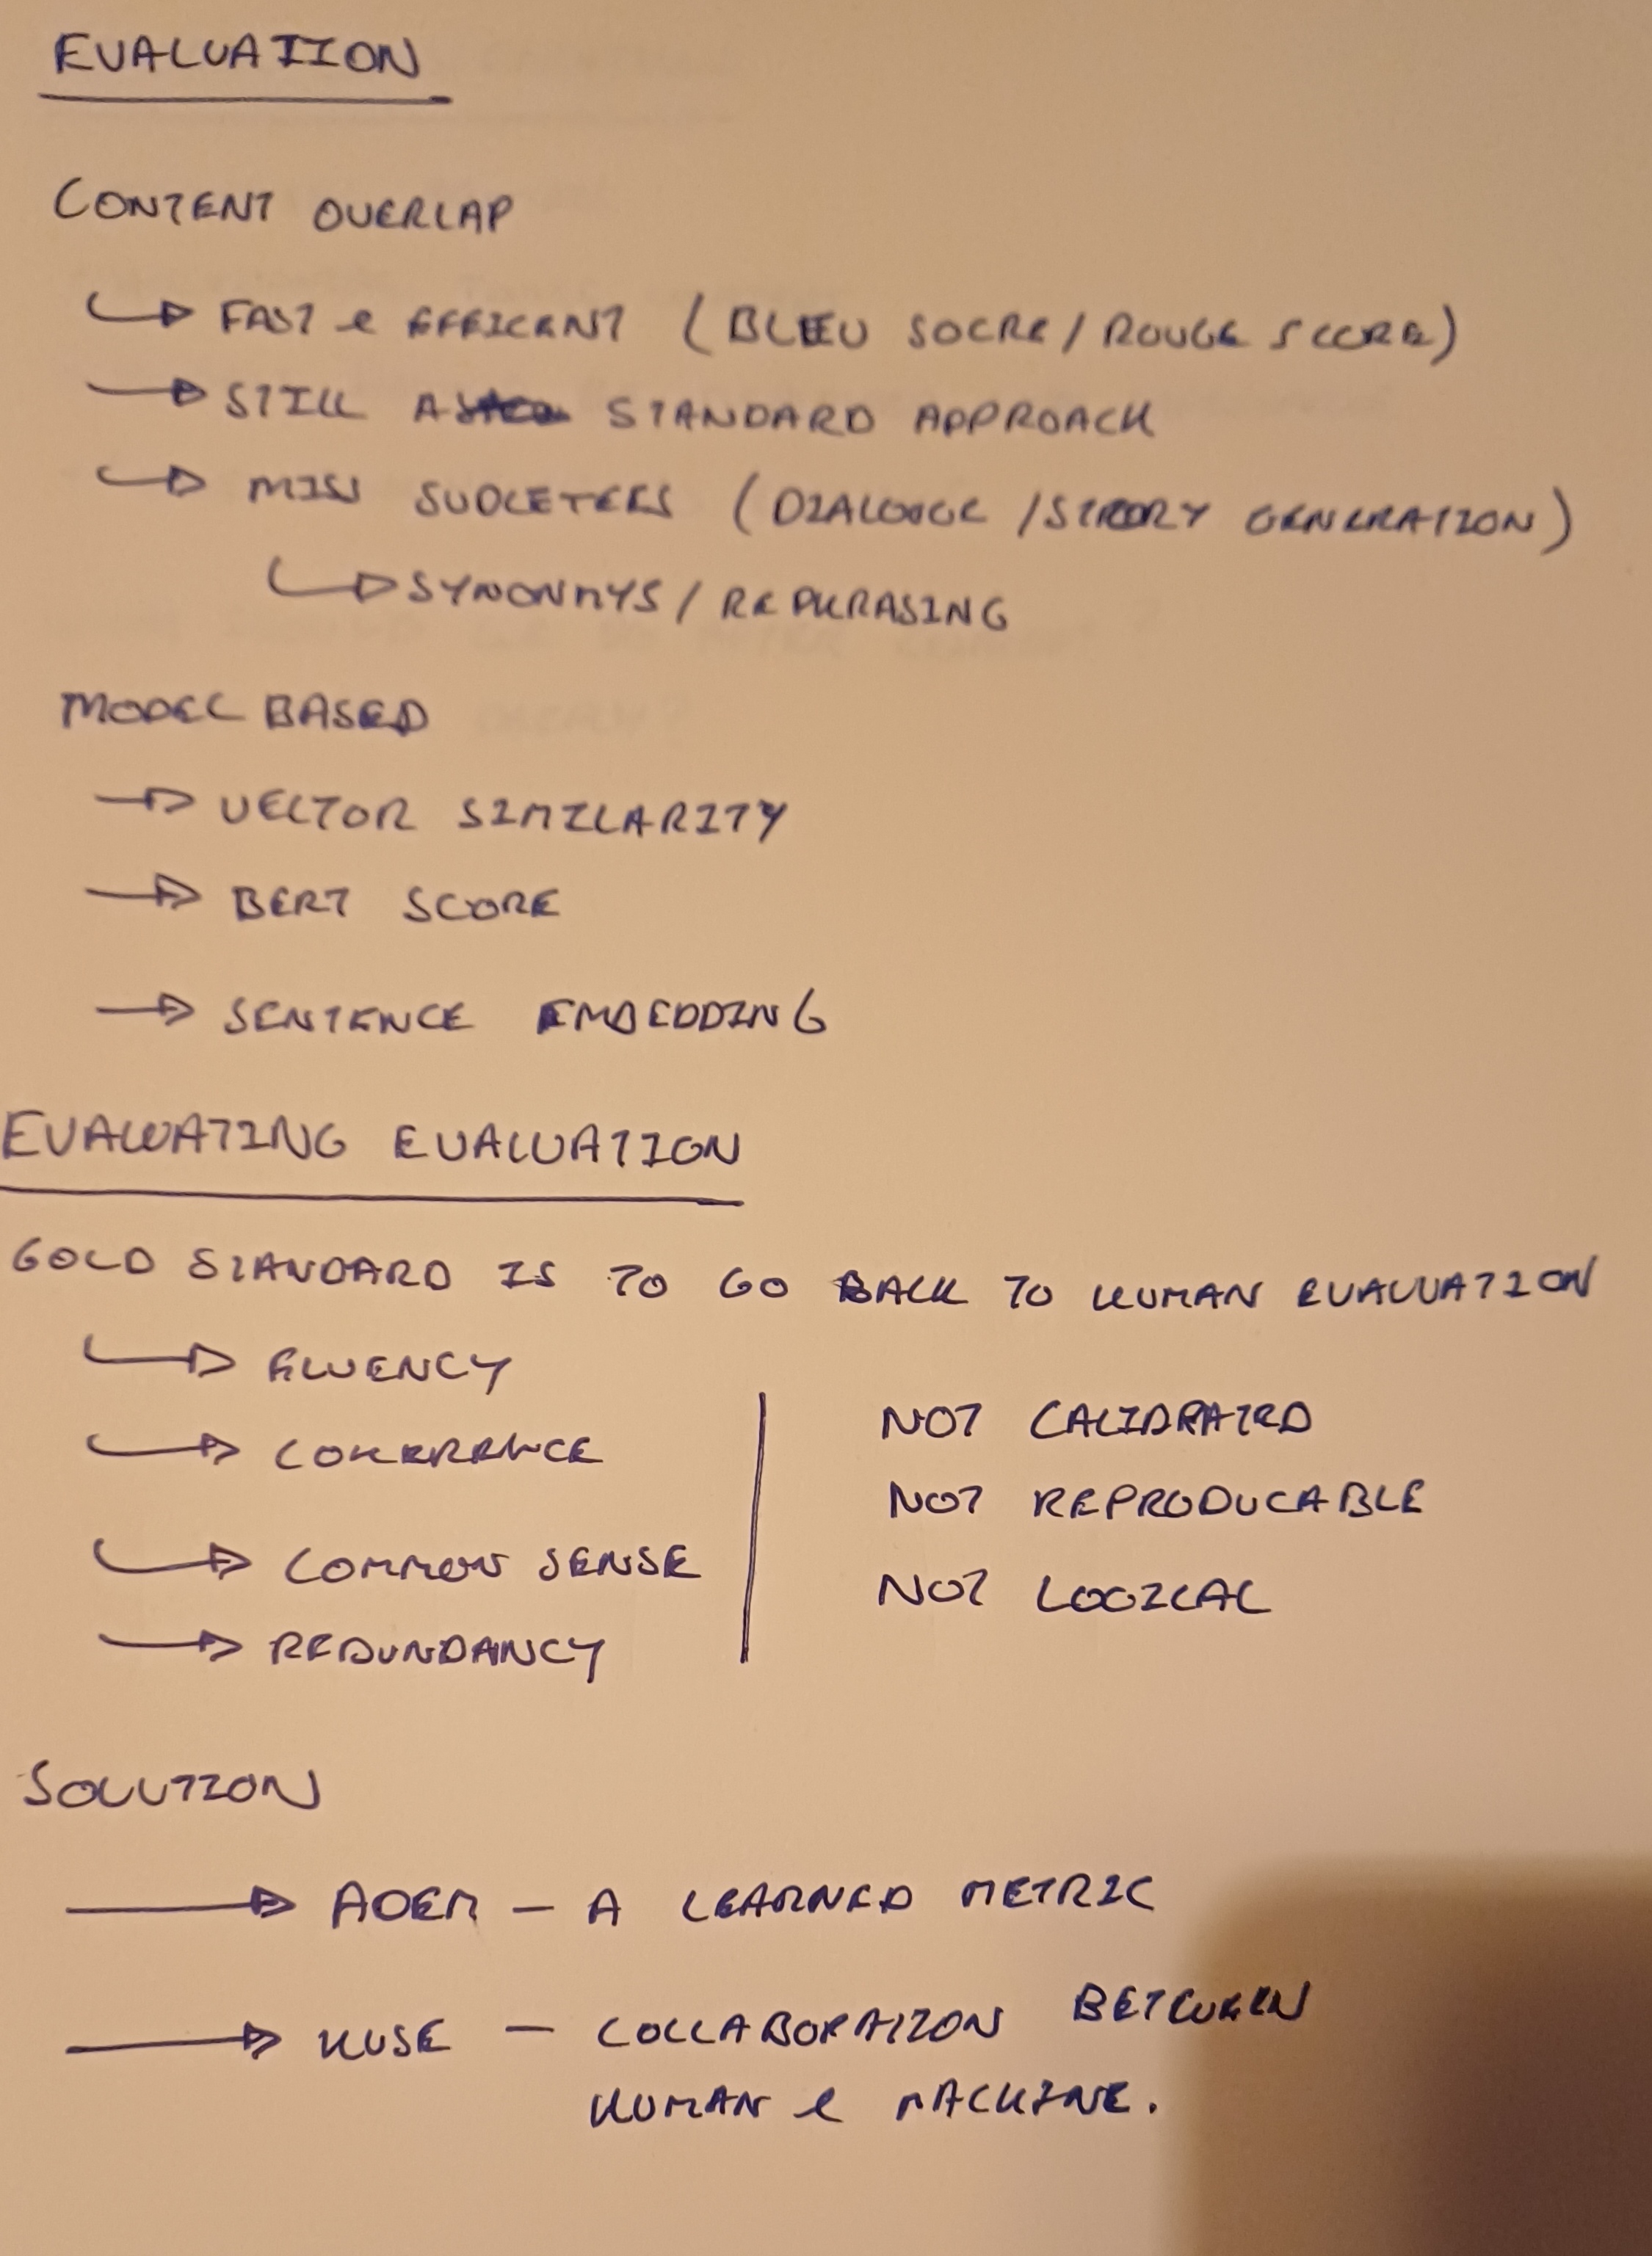 EVALUATION
CONTENT OVERLAP
FAST & EFFICENT (BLEU SOCRE / ROUGE SCORE)
STILL A STANDARD APPROACH
MISS SUDLETEES (DIALOUGE / STRORY GENERATION)
SYNONMYS / REPHRASING
MODEL BASED
VECTOR SIMILARITY
BERT SCORE
SENTENCE EMBEDDING
EVALUATING EVALUATION
GOLD STANDARD IS TO GO BACK TO HUMAN EVALUATION
FLUENCY
NOT CALIBRATED
COHERENCE
NOT REPRODUCABLE
COMMON SENSE
NOT LOGICAL
REDUNDANCY
SOLUTION
ADEM - A LEARNED METRIC
HUSE - COLLABORATION BETWEEN
HUMAN & MACHINE.